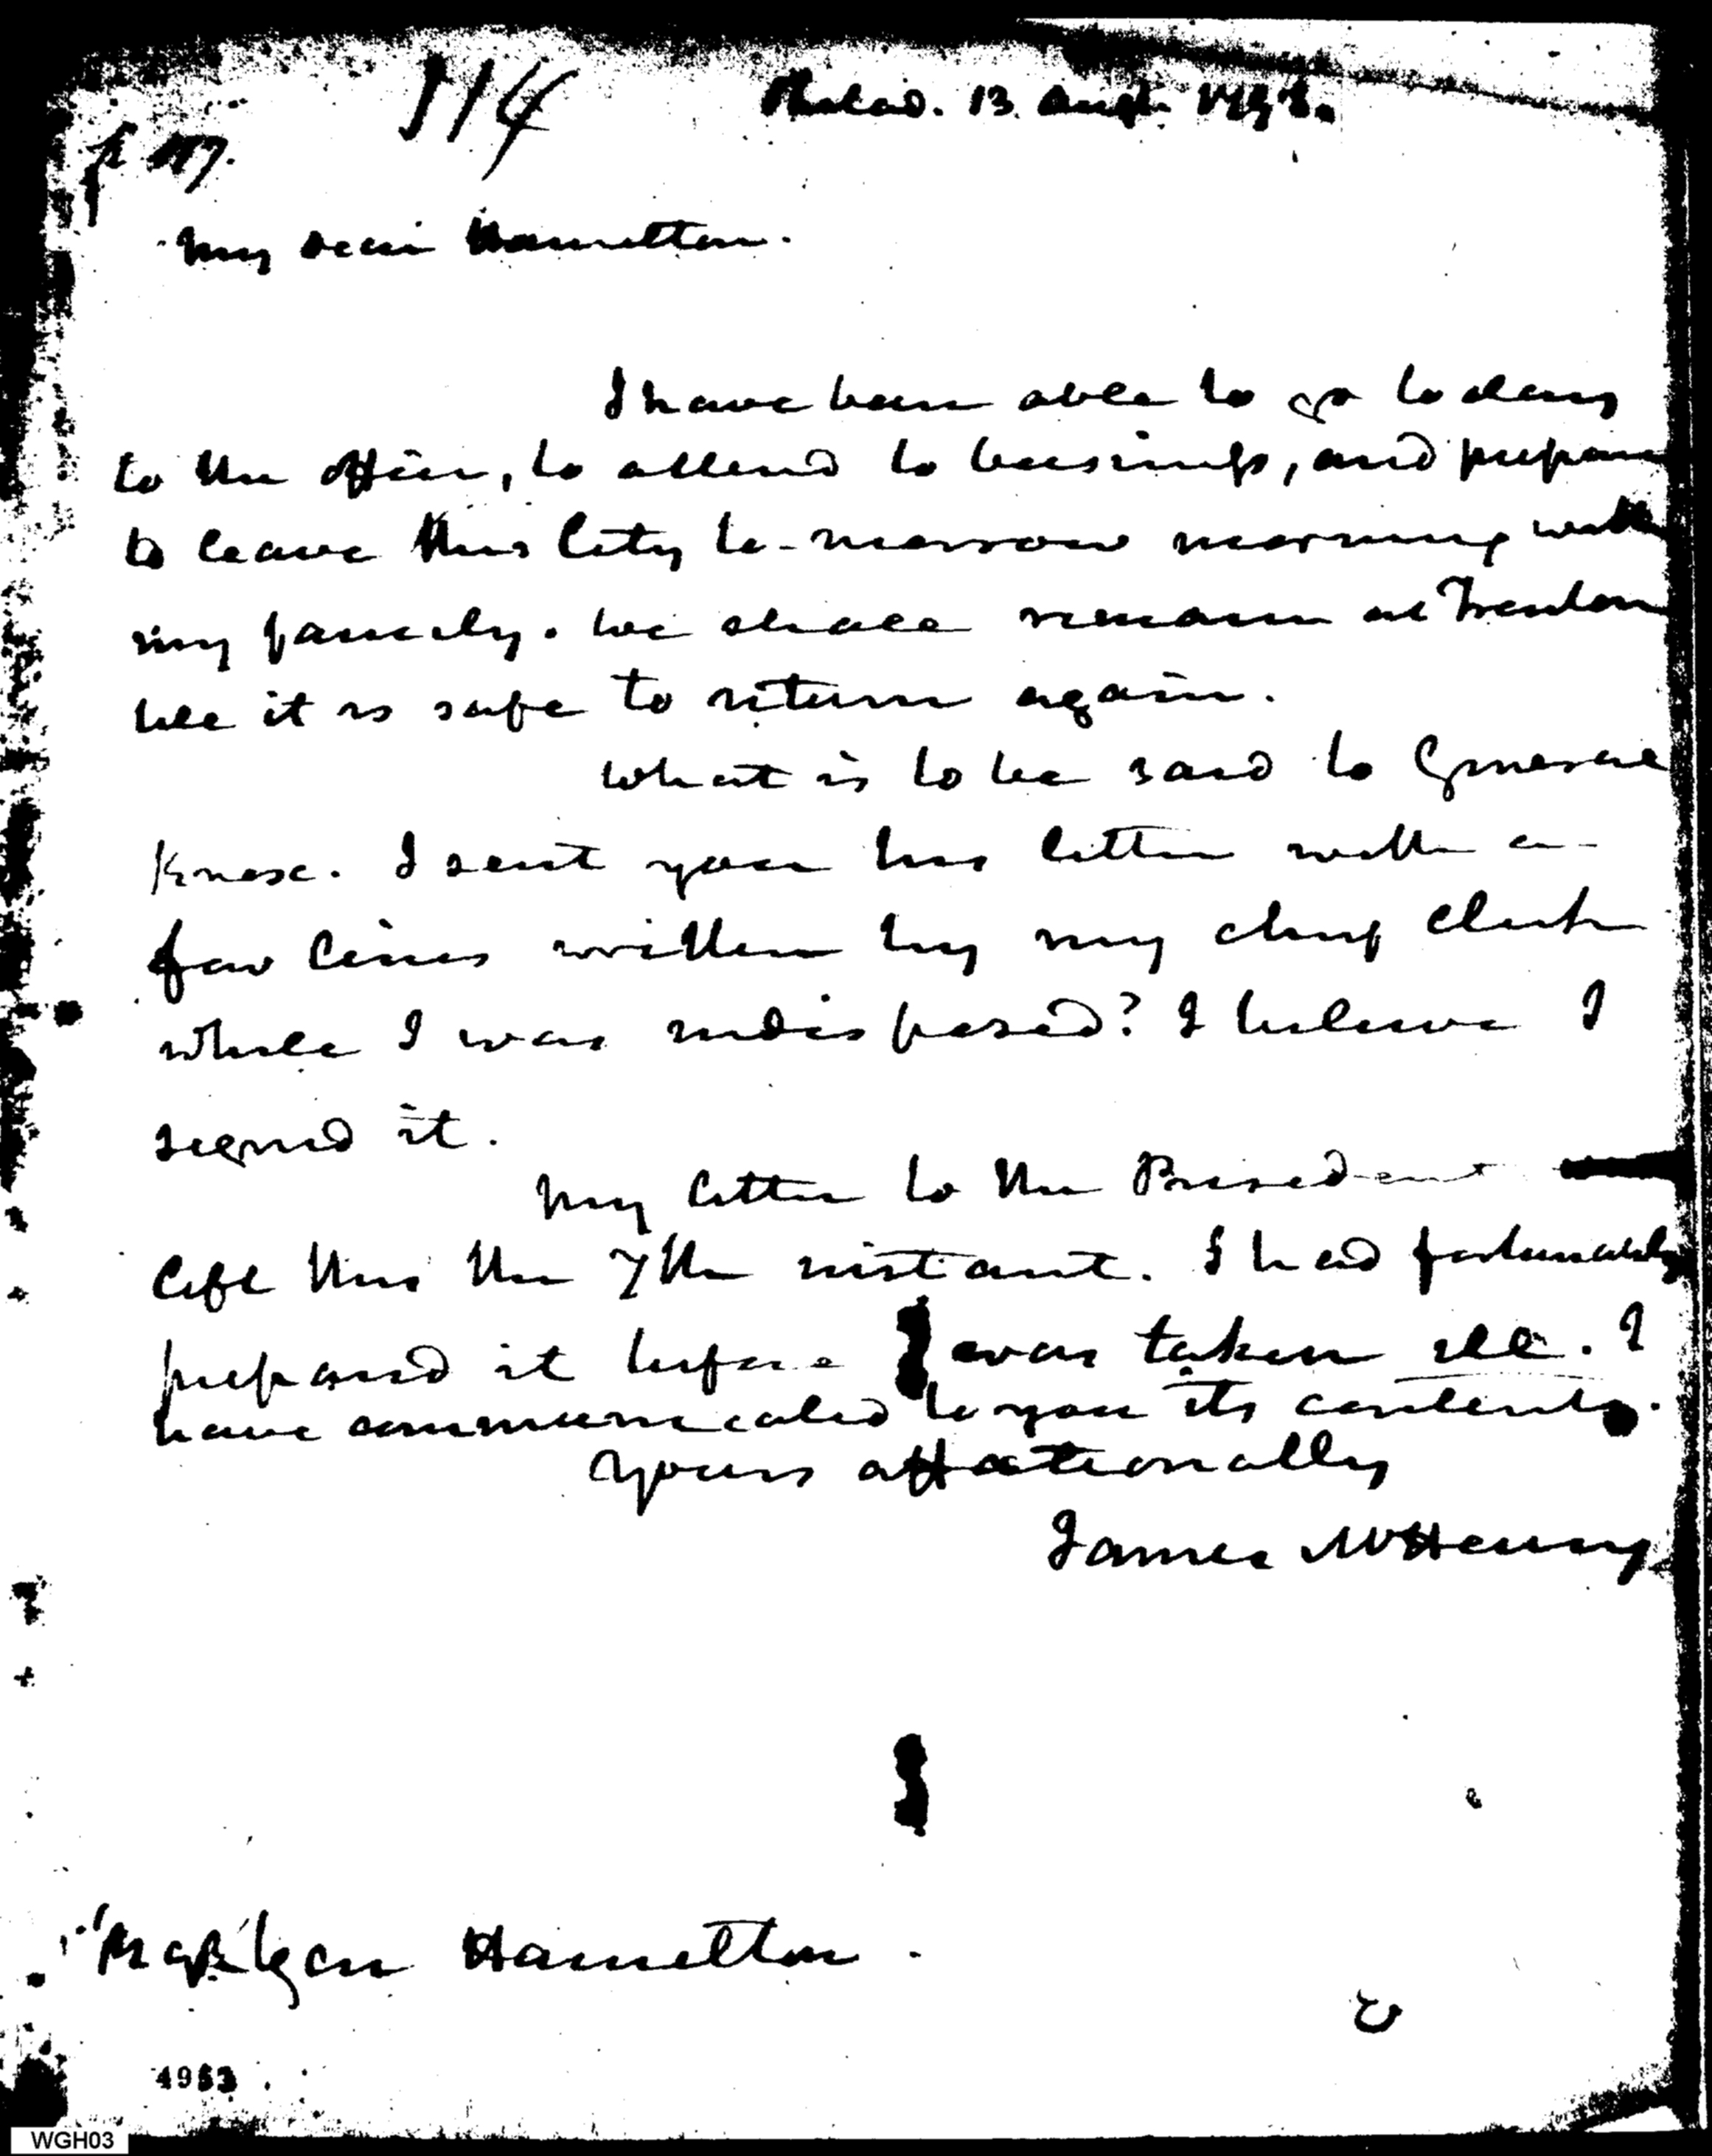 114
Philad. 13. Augt. 1798.
My dear Hamilton.
I have been able to go to day
to the office, to attend to business, and prepare
to leave this City to-morrow morning with
my family. We shall remain at Trenton
till it is safe to return again.
What is to be said to General
Knox. I sent you his letter with a
few lines written by my chief clerk
while I was indisposed? I believe I
signed it.
My letter to the President
left this the 7th instant. I had fortunately
prepared it before I was taken ill. I
have communicated to you its contents.
Yours affectionally
James McHenry
Maj Gen Hamilton.
4953
WGH03